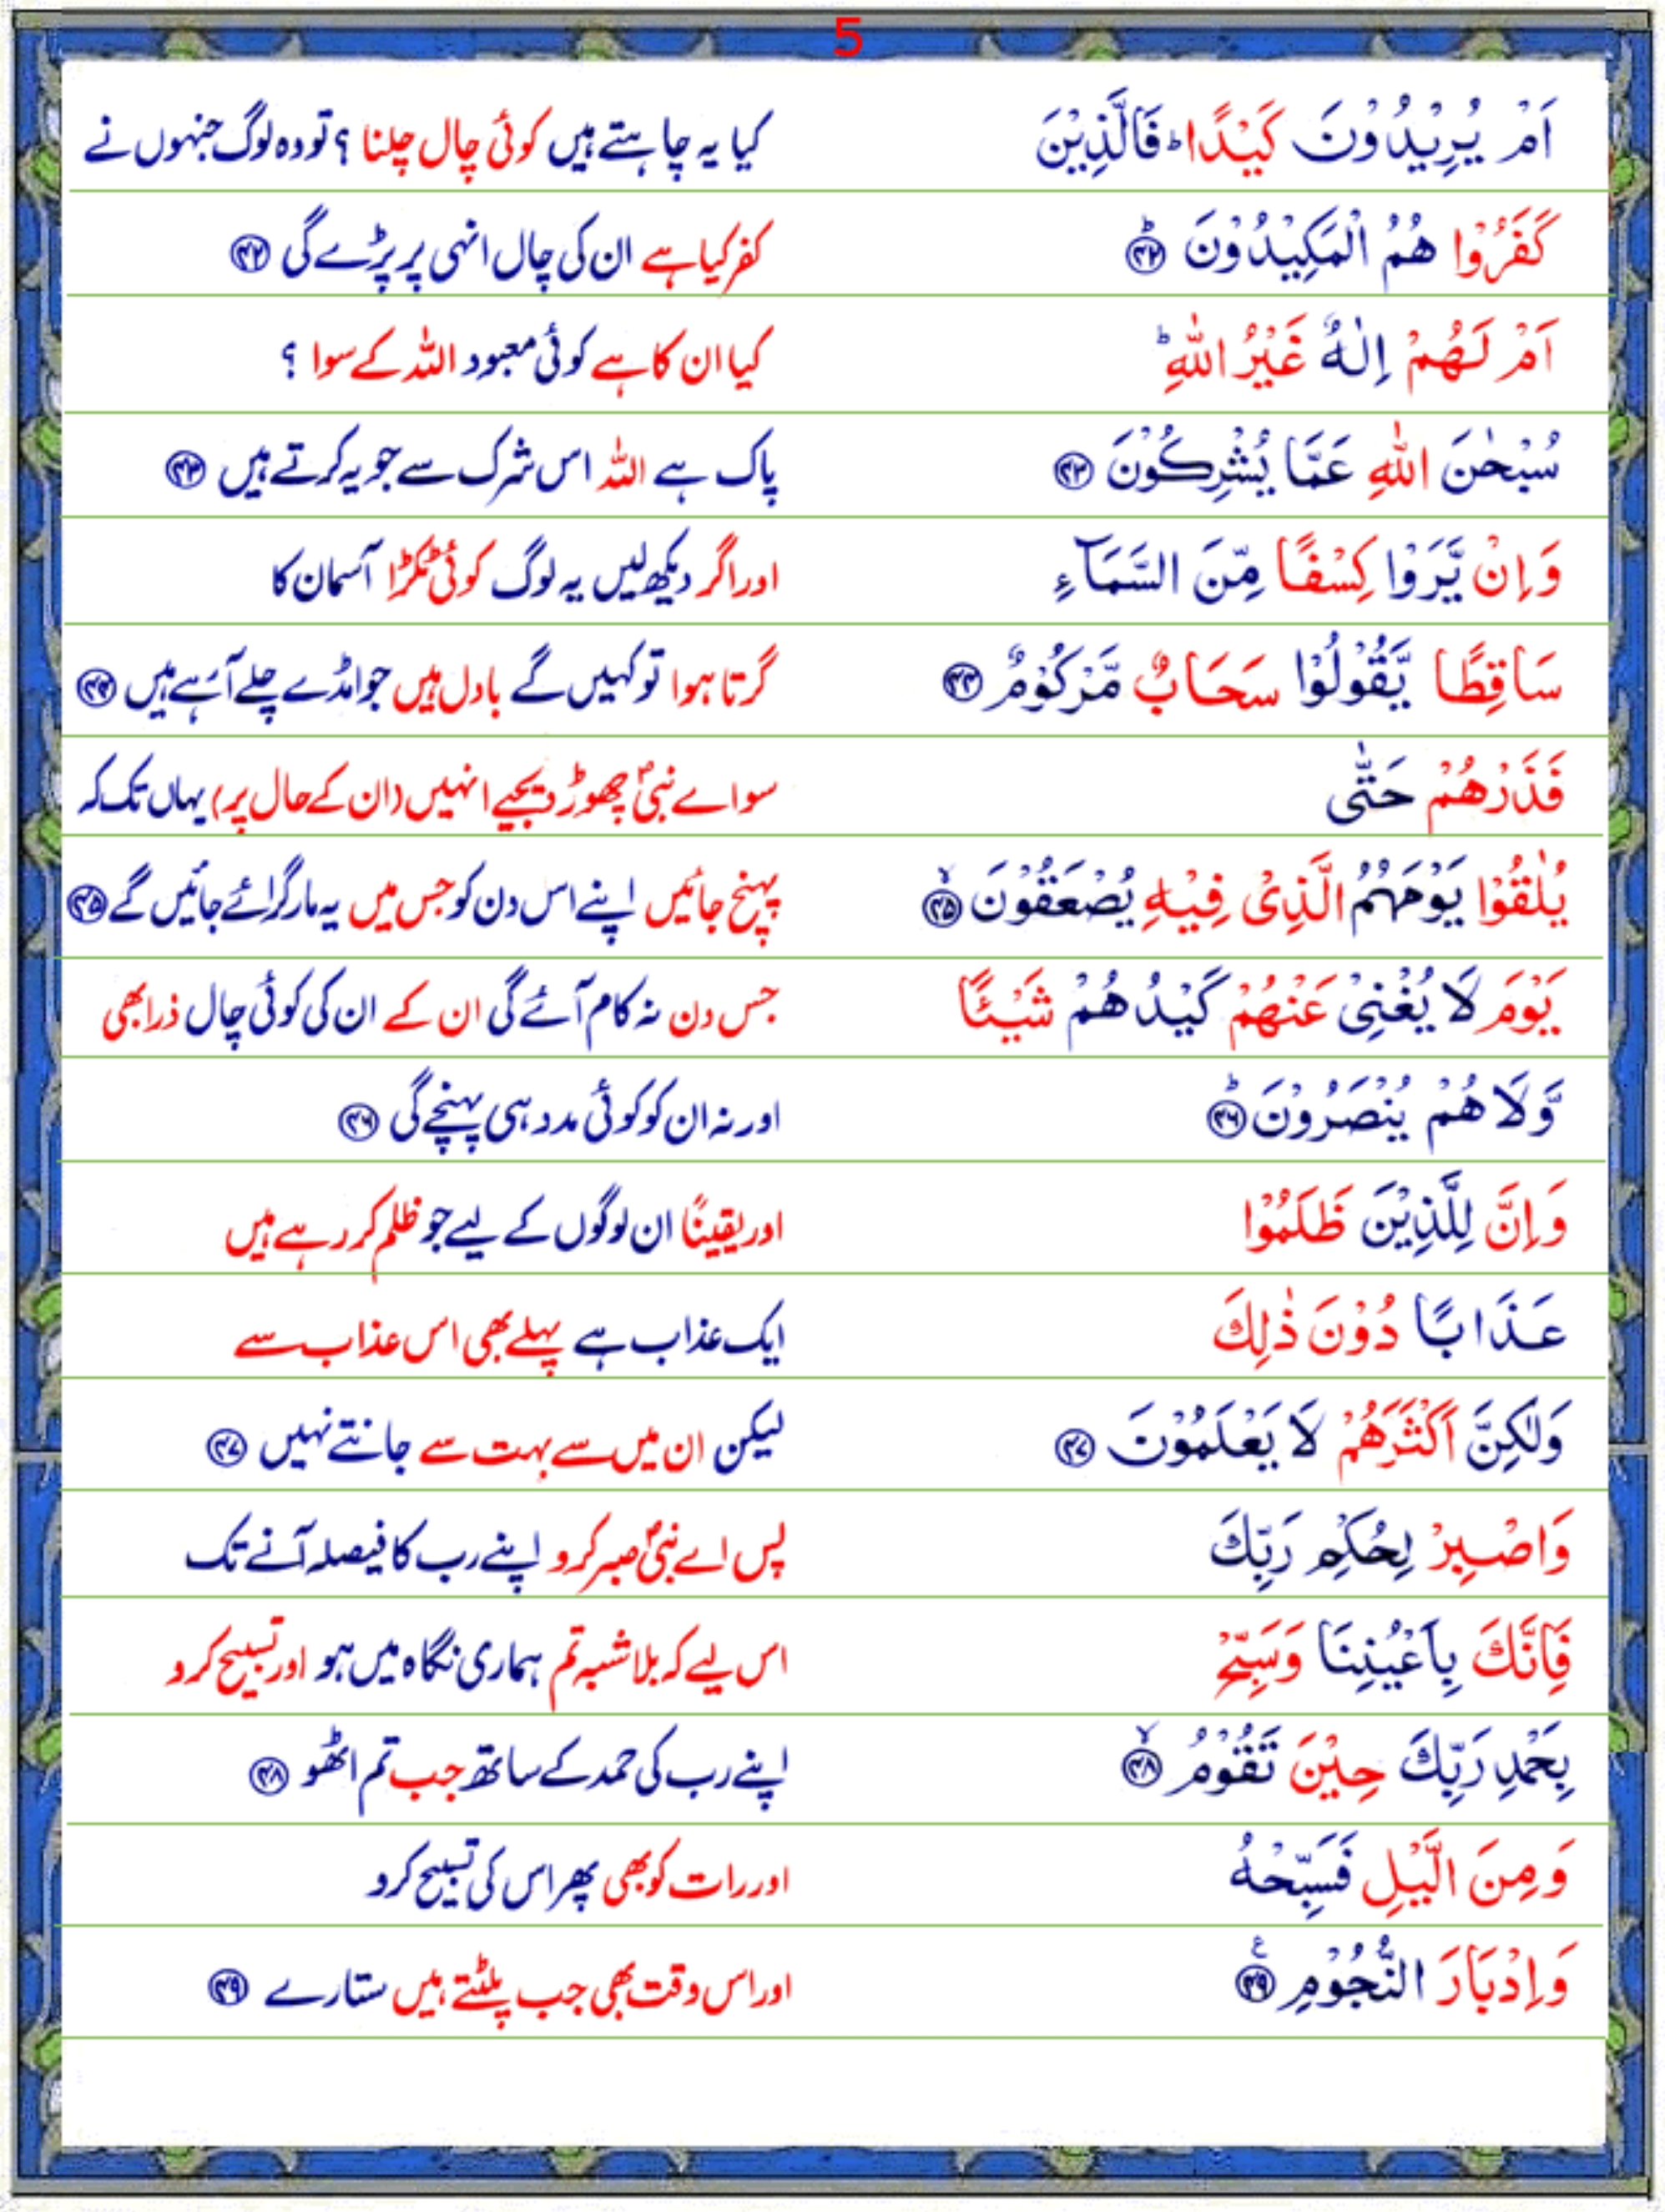 5
اَمۡ يُرِيۡدُوۡنَ كَيۡدًا ؕ فَالَّذِيۡنَ کیا یہ چاہتے ہیں کوئی چال چلنا ؟ تو وہ لوگ جنہوں نے
كَفَرُوۡا هُمُ الۡمَكِيۡدُوۡنَ ؕ ﴿۴۲﴾ کفر کیا ہے ان کی چال انہی پر پڑے گی ﴿۴۲﴾
اَمۡ لَهُمۡ اِلٰهٌ غَيۡرُ اللّٰهِ ؕ کیا ان کا ہے کوئی معبود اللہ کے سوا ؟
سُبۡحٰنَ اللّٰهِ عَمَّا يُشۡرِكُوۡنَ ﴿۴۳﴾ پاک ہے اللہ اس شرک سے جو یہ کرتے ہیں ﴿۴۳﴾
وَاِنۡ يَّرَوۡا كِسۡفًا مِّنَ السَّمَآءِ اور اگر دیکھ لیں یہ لوگ کوئی ٹکڑا آسمان کا
سَاقِطًا يَّقُوۡلُوۡا سَحَابٌ مَّرۡكُوۡمٌ ﴿۴۴﴾ گرتا ہوا تو کہیں گے بادل ہیں جو امڈے چلے آرہے ہیں ﴿۴۴﴾
فَذَرۡهُمۡ حَتّٰى سو اے نبیؐ چھوڑ دیجیے انہیں (ان کے حال پر) یہاں تک کہ
يُلٰقُوۡا يَوۡمَهُمُ الَّذِىۡ فِيۡهِ يُصۡعَقُوۡنَ ۙ ﴿۴۵﴾ پہنچ جائیں اپنے اس دن کو جس میں یہ مار گرائے جائیں گے ﴿۴۵﴾
يَوۡمَ لَا يُغۡنِىۡ عَنۡهُمۡ كَيۡدُهُمۡ شَيۡـئًا جس دن نہ کام آئے گی ان کے ان کی کوئی چال ذرا بھی
وَّلَا هُمۡ يُنۡصَرُوۡنَ ؕ ﴿۴۶﴾ اور نہ ان کو کوئی مدد ہی پہنچے گی ﴿۴۶﴾
وَاِنَّ لِلَّذِيۡنَ ظَلَمُوۡا اور یقیناً ان لوگوں کے لیے جو ظلم کر رہے ہیں
عَذَابًا دُوۡنَ ذٰلِكَ ایک عذاب ہے پہلے بھی اس عذاب سے
وَلٰكِنَّ اَكۡثَرَهُمۡ لَا يَعۡلَمُوۡنَ ﴿۴۷﴾ لیکن ان میں سے بہت سے جانتے نہیں ﴿۴۷﴾
وَاصۡبِرۡ لِحُكۡمِ رَبِّكَ پس اے نبیؐ صبر کرو اپنے رب کا فیصلہ آنے تک
فَاِنَّكَ بِاَعۡيُنِنَا وَسَبِّحۡ اس لیے کہ بلا شبہ تم ہماری نگاہ میں ہو اور تسبیح کرو
بِحَمۡدِ رَبِّكَ حِيۡنَ تَقُوۡمُ ۙ ﴿۴۸﴾ اپنے رب کی حمد کے ساتھ جب تم اٹھو ﴿۴۸﴾
وَمِنَ الَّيۡلِ فَسَبِّحۡهُ اور رات کو بھی پھر اس کی تسبیح کرو
وَاِدۡبَارَ النُّجُوۡمِ ﴿۴۹﴾ ع اور اس وقت بھی جب پلٹتے ہیں ستارے ﴿۴۹﴾